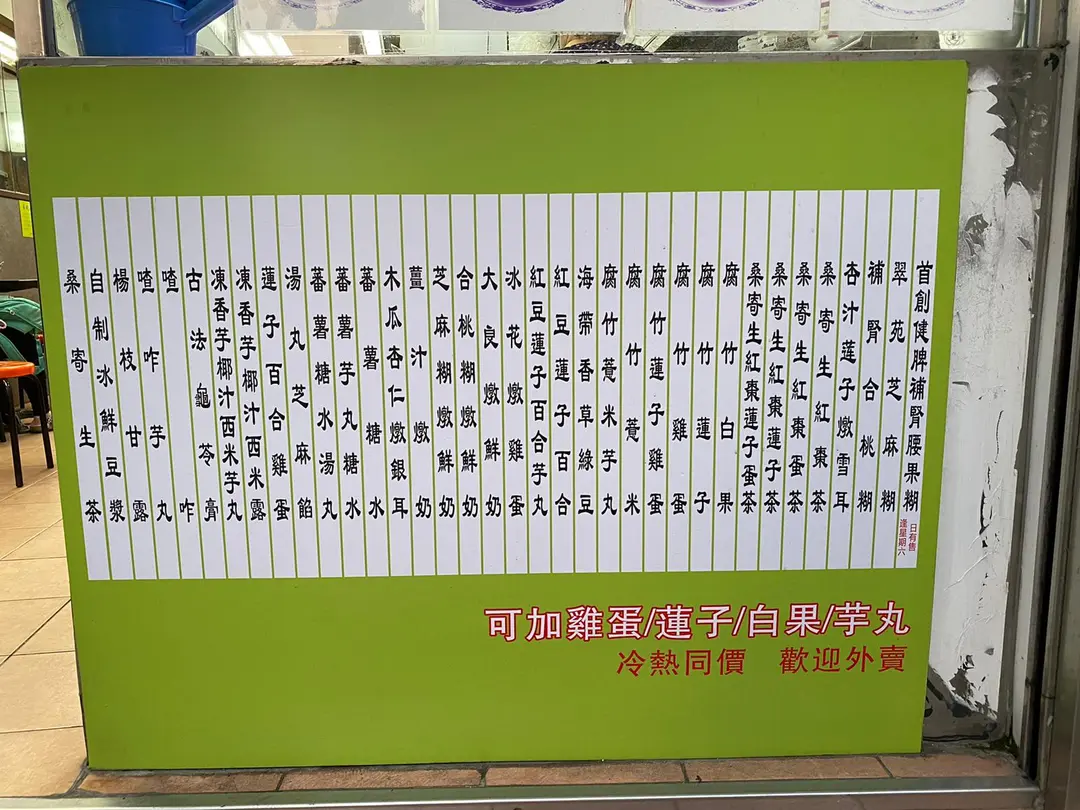 首創健脾補腎腰果糊
逢星期六
日有售
翠苑芝麻糊
補腎合桃糊
杏汁蓮子燉雪耳
桑寄生紅棗茶
桑寄生紅棗蛋茶
桑寄生紅棗蓮子茶
桑寄生紅棗蓮子蛋茶
腐竹白果
腐竹蓮子
腐竹雞蛋
腐竹蓮子雞蛋
腐竹薏米
腐竹薏米芋丸
海帶香草綠豆
紅豆蓮子百合
紅豆蓮子百合芋丸
冰花燉雞蛋
大良燉鮮奶
合桃糊燉鮮奶
芝麻糊燉鮮奶
薑汁燉奶
木瓜杏仁燉銀耳
蕃薯糖水
蕃薯芋丸糖水
蕃薯糖水湯丸
湯丸芝麻餡
蓮子百合雞蛋
凍香芋椰汁西米露
凍香芋椰汁西米芋丸
古法龜苓膏
喳咋
喳咋芋丸
楊枝甘露
自制冰鮮豆漿
桑寄生茶
可加雞蛋/蓮子/白果/芋丸
冷熱同價 歡迎外賣